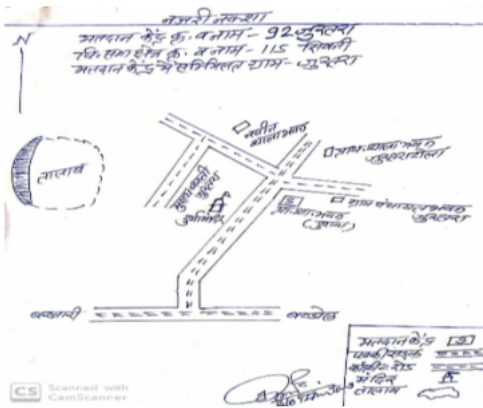 नजरी नक्शा
N
मतदान केंद्र क्र. व नाम - 92 जुरतरा
वि. सभा क्षेत्र क्र. व नाम - 115 सिवनी
मतदान केंद्र में सम्मिलित ग्राम - जुरतरा
तालाब
नवीन
शाला भवन
मुख्य बस्ती
जुरतरा
दुर्गा मंदिर
ग्राम पंचायत भवन
जुरतरा
बखारी
बण्डोल
मतदान केंद्र
पक्की सड़क
मंदिर
तालाब
CS Scanned with
CamScanner